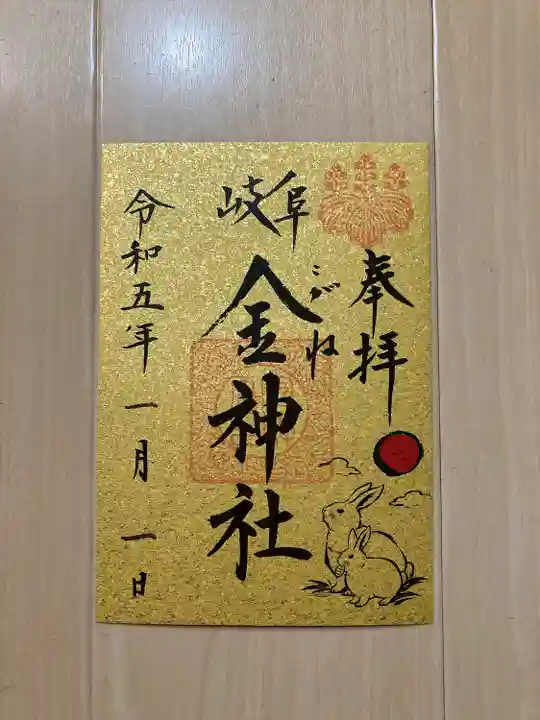 奉拝
岐阜
こがね
金神社
令和五年一月一日